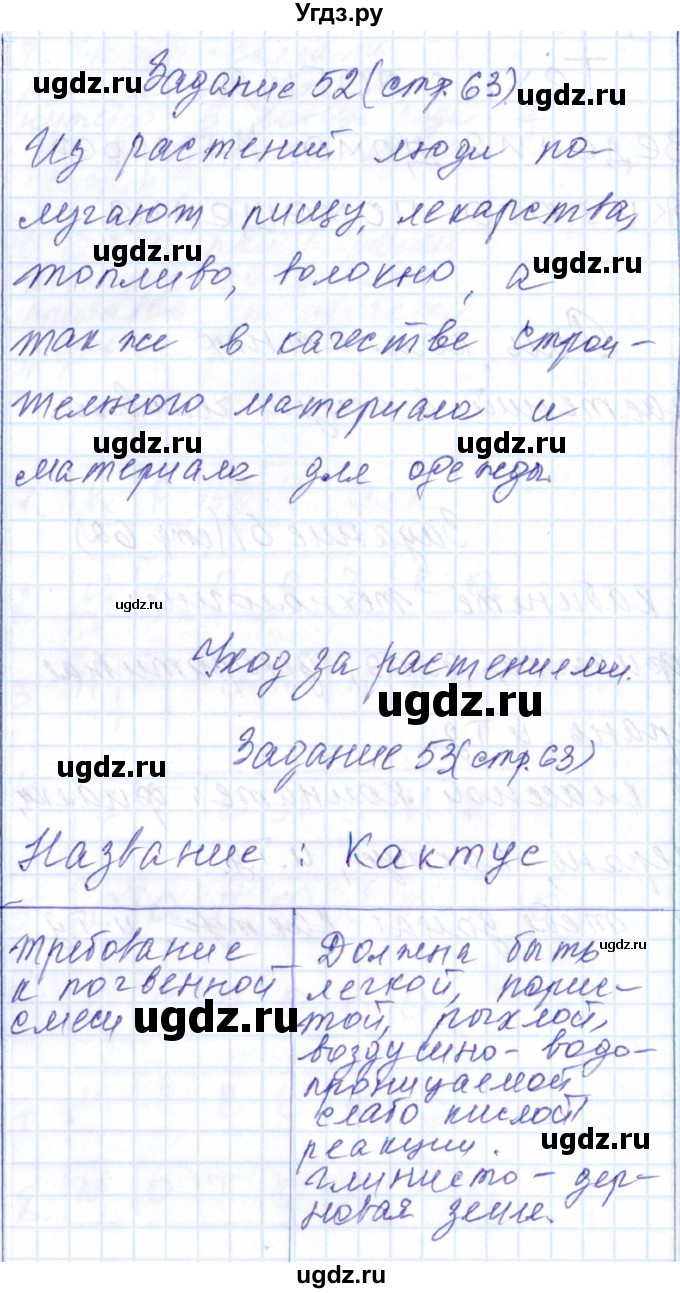 Угдз.ру
Задание 52 (стр. 63)
ugdz.ru
ugdz.ru
Из растений люди по-
лучают пищу, лекарства,
ugdz.ru
ugdz.ru
топливо, волокно, а
так же в качестве строи-
тельного материала и
ugdz.ru
ugdz.ru
материала для одежды.
ugdz.ru
Уход за растениями.
ugdz.ru
Задание 53 (стр. 63)
ugdz.ru
Название: Кактус
требование
к почвенной
смеси
ugdz.ru
Должна быть
ugdz.ru
легкой, порис-
той, рыхлой,
воздушно-водо-
проницаемой
слабо кислой
реакции.
ugdz.ru
глинисто-дер-
новая земле.
ugdz.ru